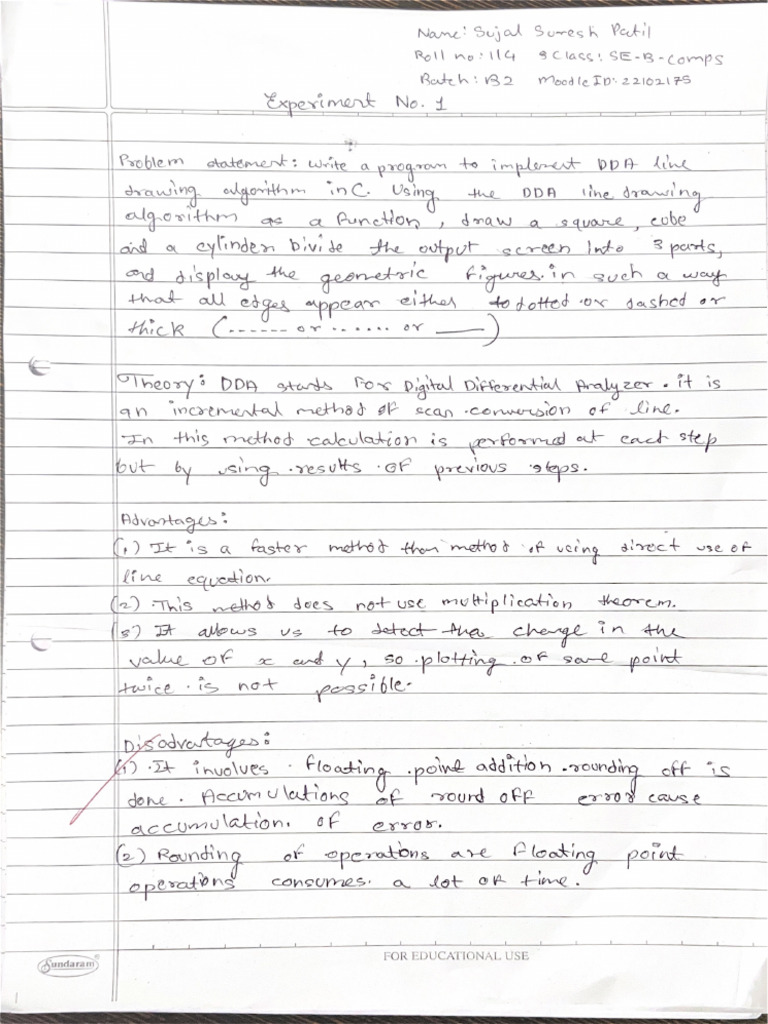 Name: Sujal Suresh Patil
Roll no: 114 Class: SE-B-Comps
Batch: B2 Moodle ID: 22102175
Experiment No. 1
Problem statement: write a program to implement DDA line
drawing algorithm in C. Using the DDA line drawing
algorithm as a function, draw a square, cube
and a cylinder Divide the output screen into 3 parts,
and display the geometric figures in such a way
that all edges appear either dotted or dashed or
thick (------ or ...... or ___)
Theory: DDA stands For Digital Differential Analyzer. it is
an incremental method of scan conversion of line.
In this method calculation is performed at each step
but by using results of previous steps.
Advantages:
(1) It is a faster method than method of using direct use of
line equation.
(2) This method does not use multiplication theorem.
(3) It allows us to detect the change in the
value of x and y, so plotting of same point
twice is not possible.
Disadvantages:
(1) It involves floating point addition rounding off is
done. Accumulations of round off error cause
accumulation of error.
(2) Rounding of operations are floating point
operations consumes a lot of time.
Sundaram®
FOR EDUCATIONAL USE